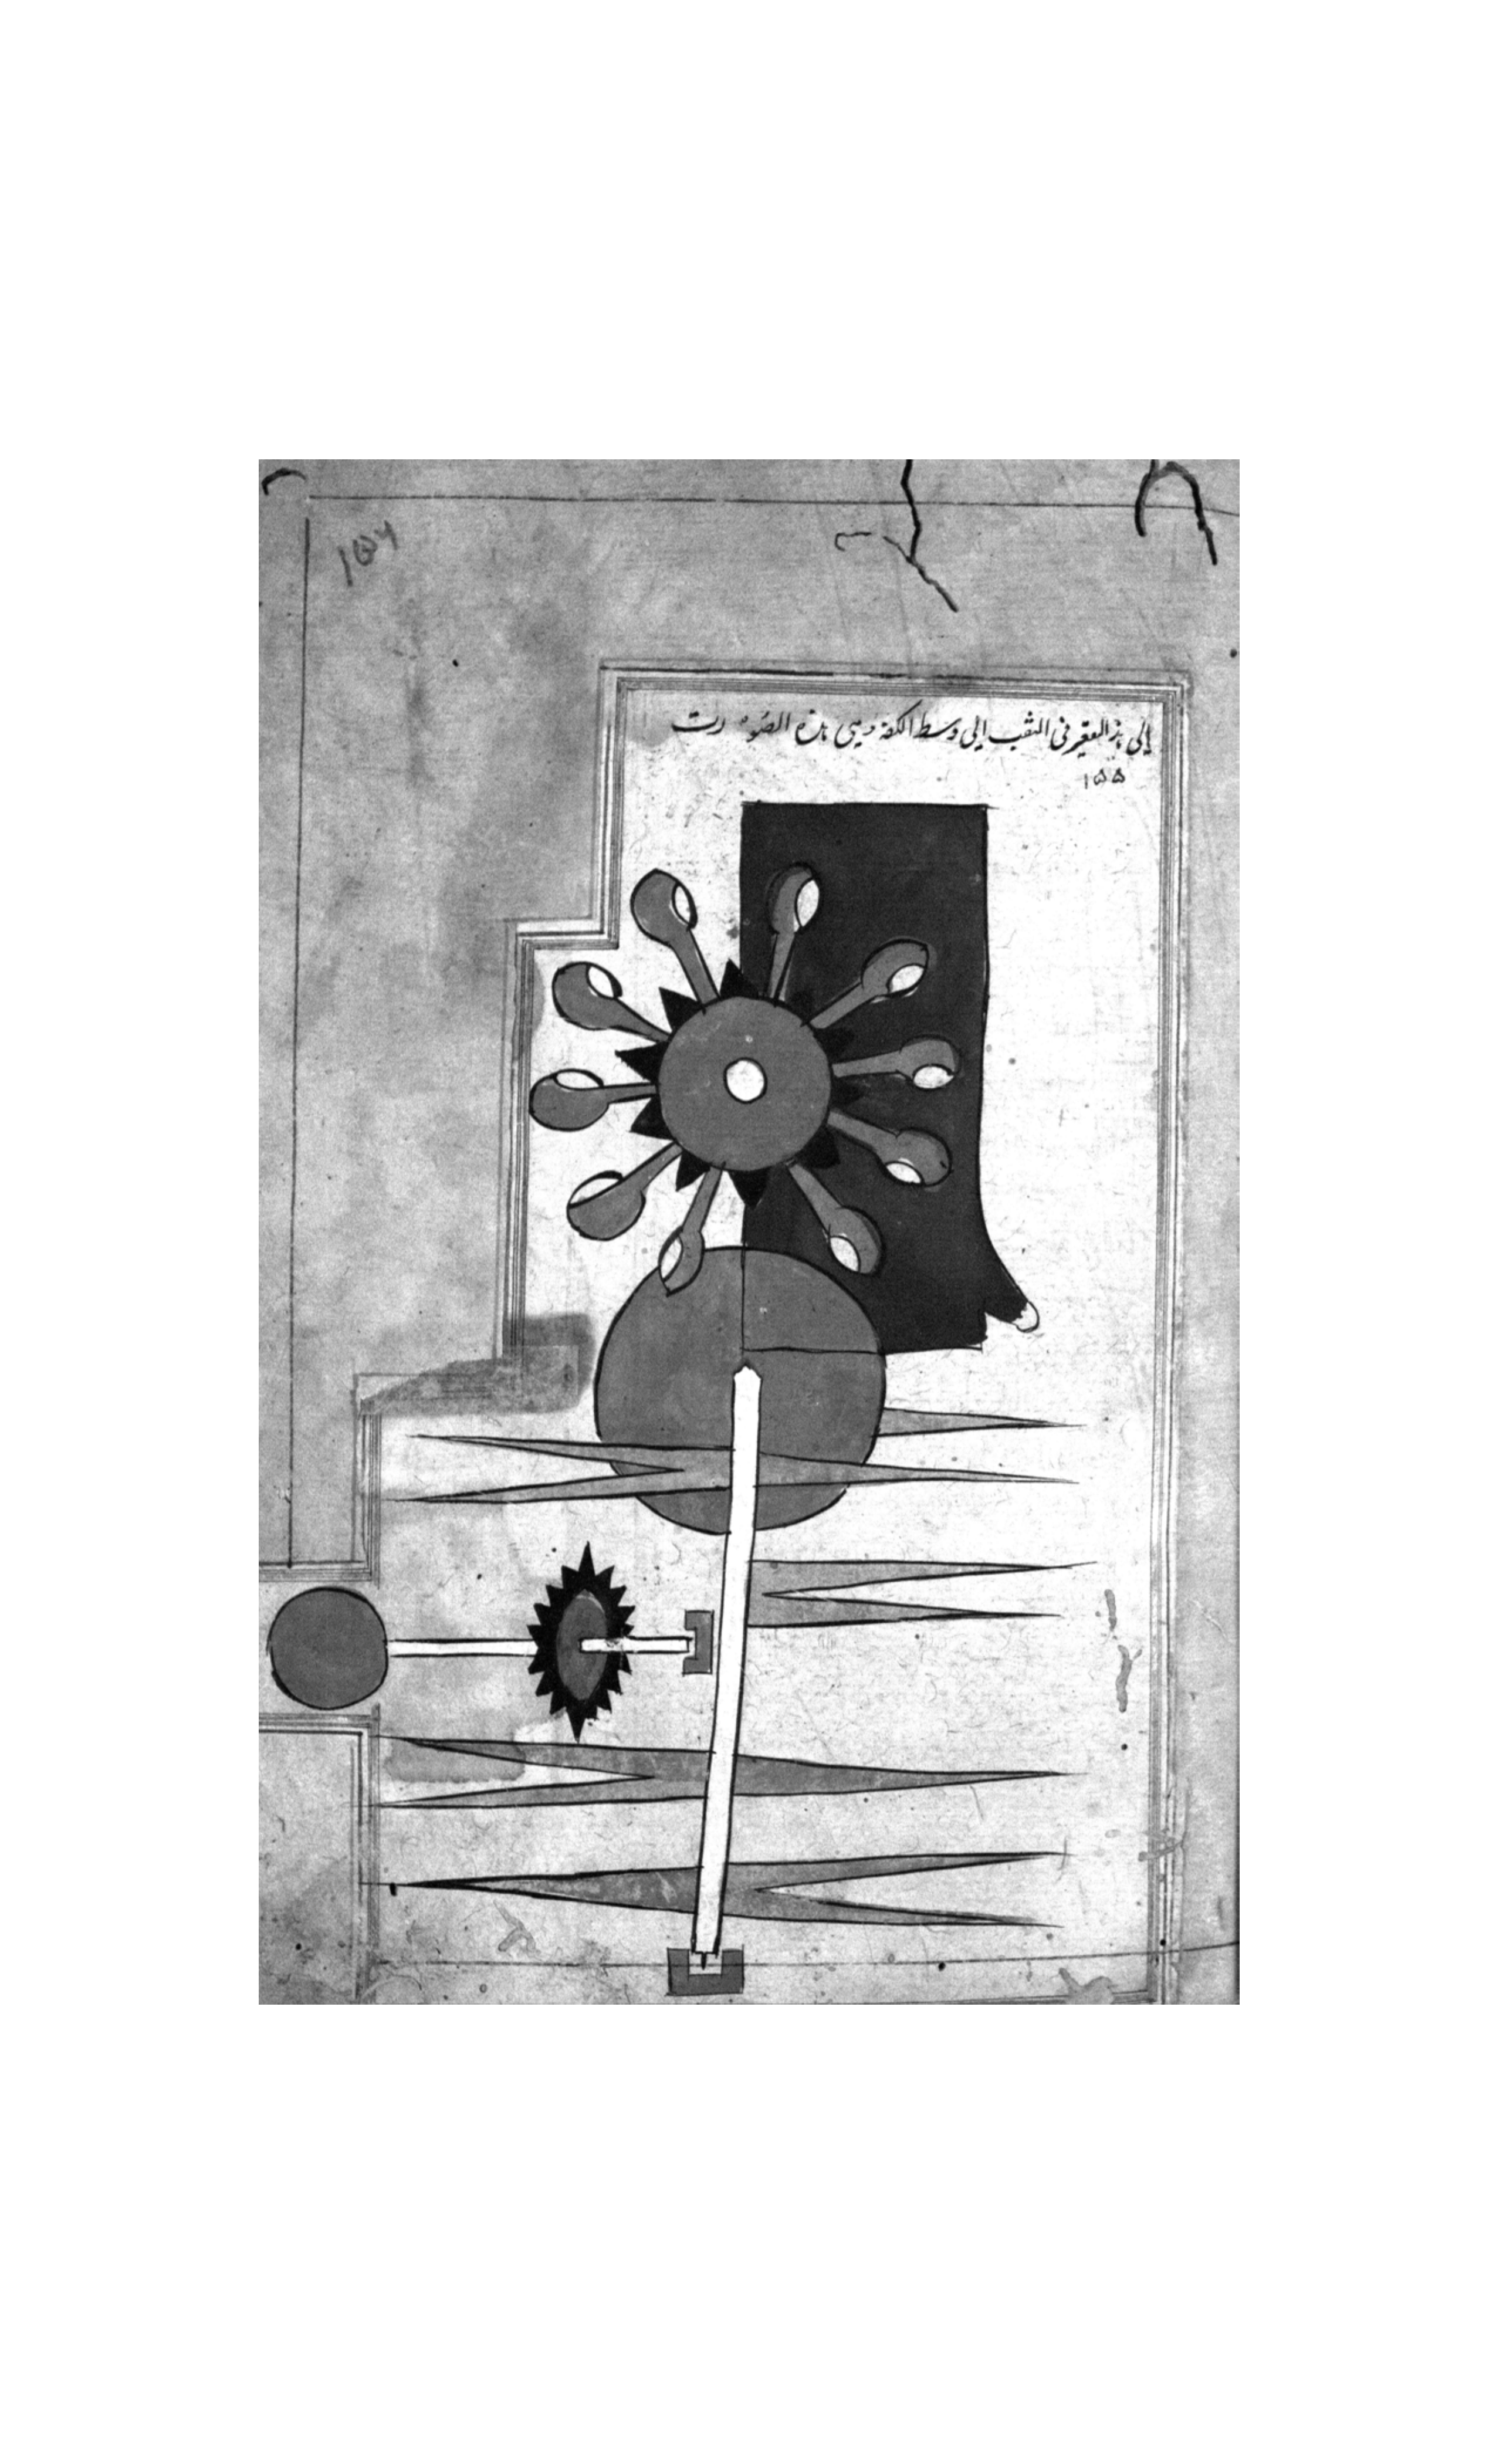 ١٥٦
إلى هذا العقير فى الثقب الى وسط الكفة وهى هذه الصورت
١٥٥